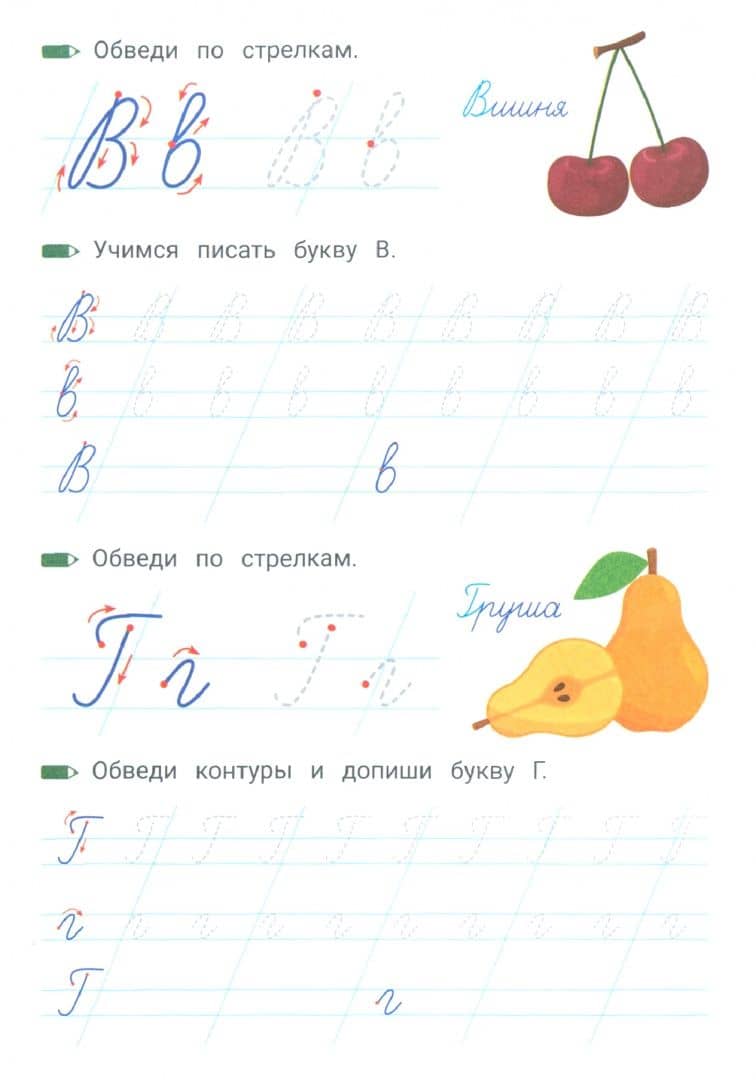 Обведи по стрелкам.
В в В в
Вишня
Учимся писать букву В.
В В В В В В В В В
в в в в в в в в в
В в
Обведи по стрелкам.
Г г Г г
Груша
Обведи контуры и допиши букву Г.
Г Г Г Г Г Г Г Г Г Г
г г г г г г г г г г
Г г